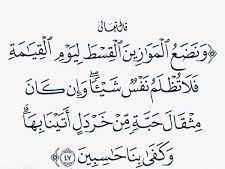 قال تعالى
﴿وَنَضَعُ الْمَوَازِينَ الْقِسْطَ لِيَوْمِ الْقِيَامَةِ
فَلَا تُظْلَمُ نَفْسٌ شَيْئًا ۖ وَإِن كَانَ
مِثْقَالَ حَبَّةٍ مِّنْ خَرْدَلٍ أَتَيْنَا بِهَا ۗ
وَكَفَىٰ بِنَا حَاسِبِينَ ٤٧﴾